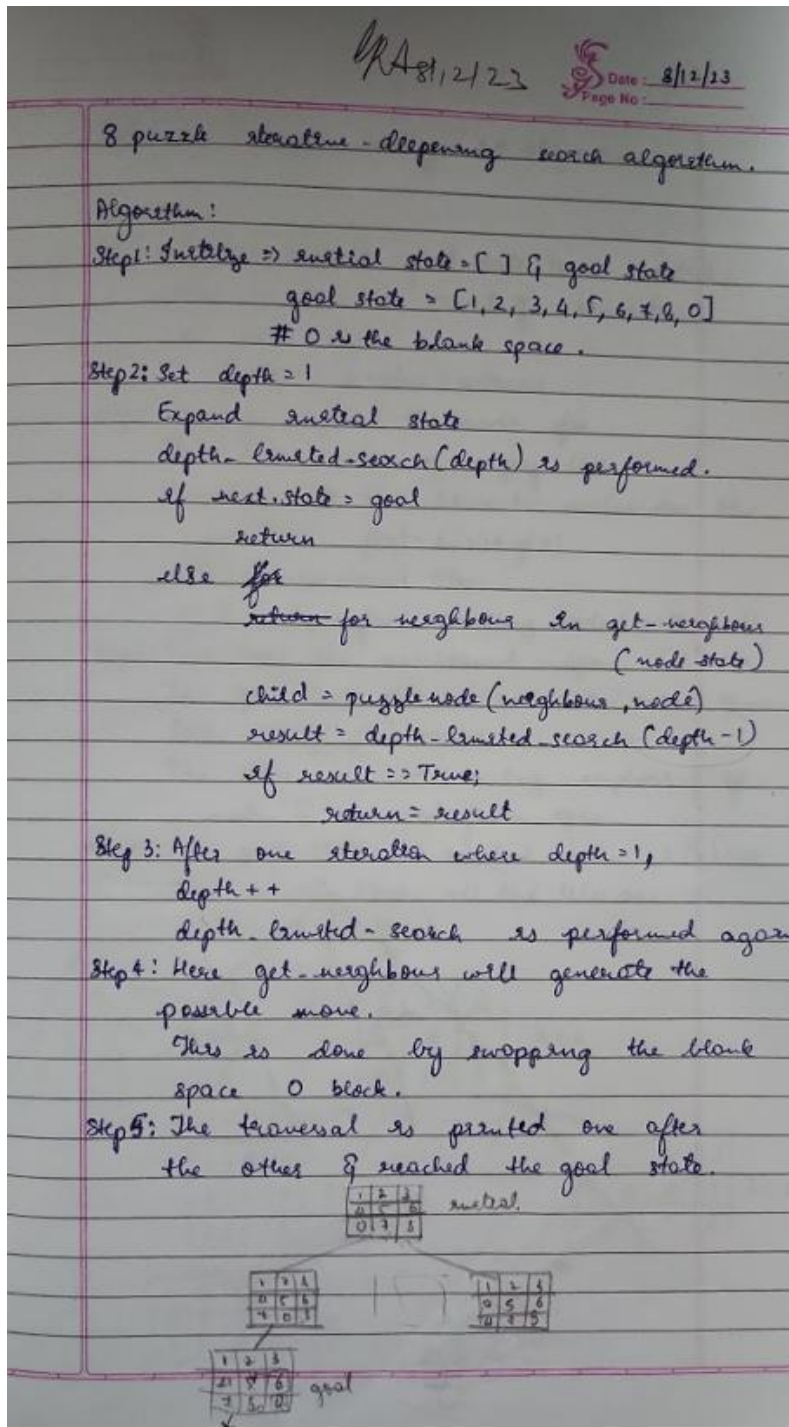 8/12/23
Date: 8/12/23
Page No:
8 puzzle iterative-deepening search algorithm.
Algorithm:
Step1: Initialize => initial state = [ ] & goal state
goal state = [1, 2, 3, 4, 5, 6, 7, 8, 0]
# 0 is the blank space.
Step2: Set depth = 1
Expand initial state
depth-limited-search (depth) is performed.
if next.state = goal
return
else for
return for neighbour in get-neighbours
(node state)
child = puzzlenode (neighbour, node)
result = depth-limited-search (depth-1)
if result == True;
return = result
Step 3: After one iteration where depth = 1,
depth++
depth-limited-search is performed again
Step 4: Here get-neighbours will generate the
possible move.
This is done by swapping the blank
space 0 block.
Step 5: The traversal is printed one after
the other & reached the goal state.
1 2 3 initial
5
0 7 8
1 2 3 1 2 3
5 6 5 6
7 0 8
1 2 3
6 goal
7